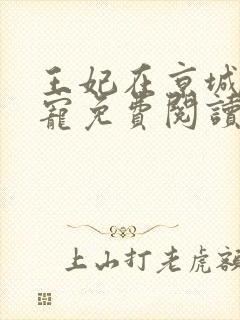 王妃在京城
寵免費閱讀
上山打老虎額